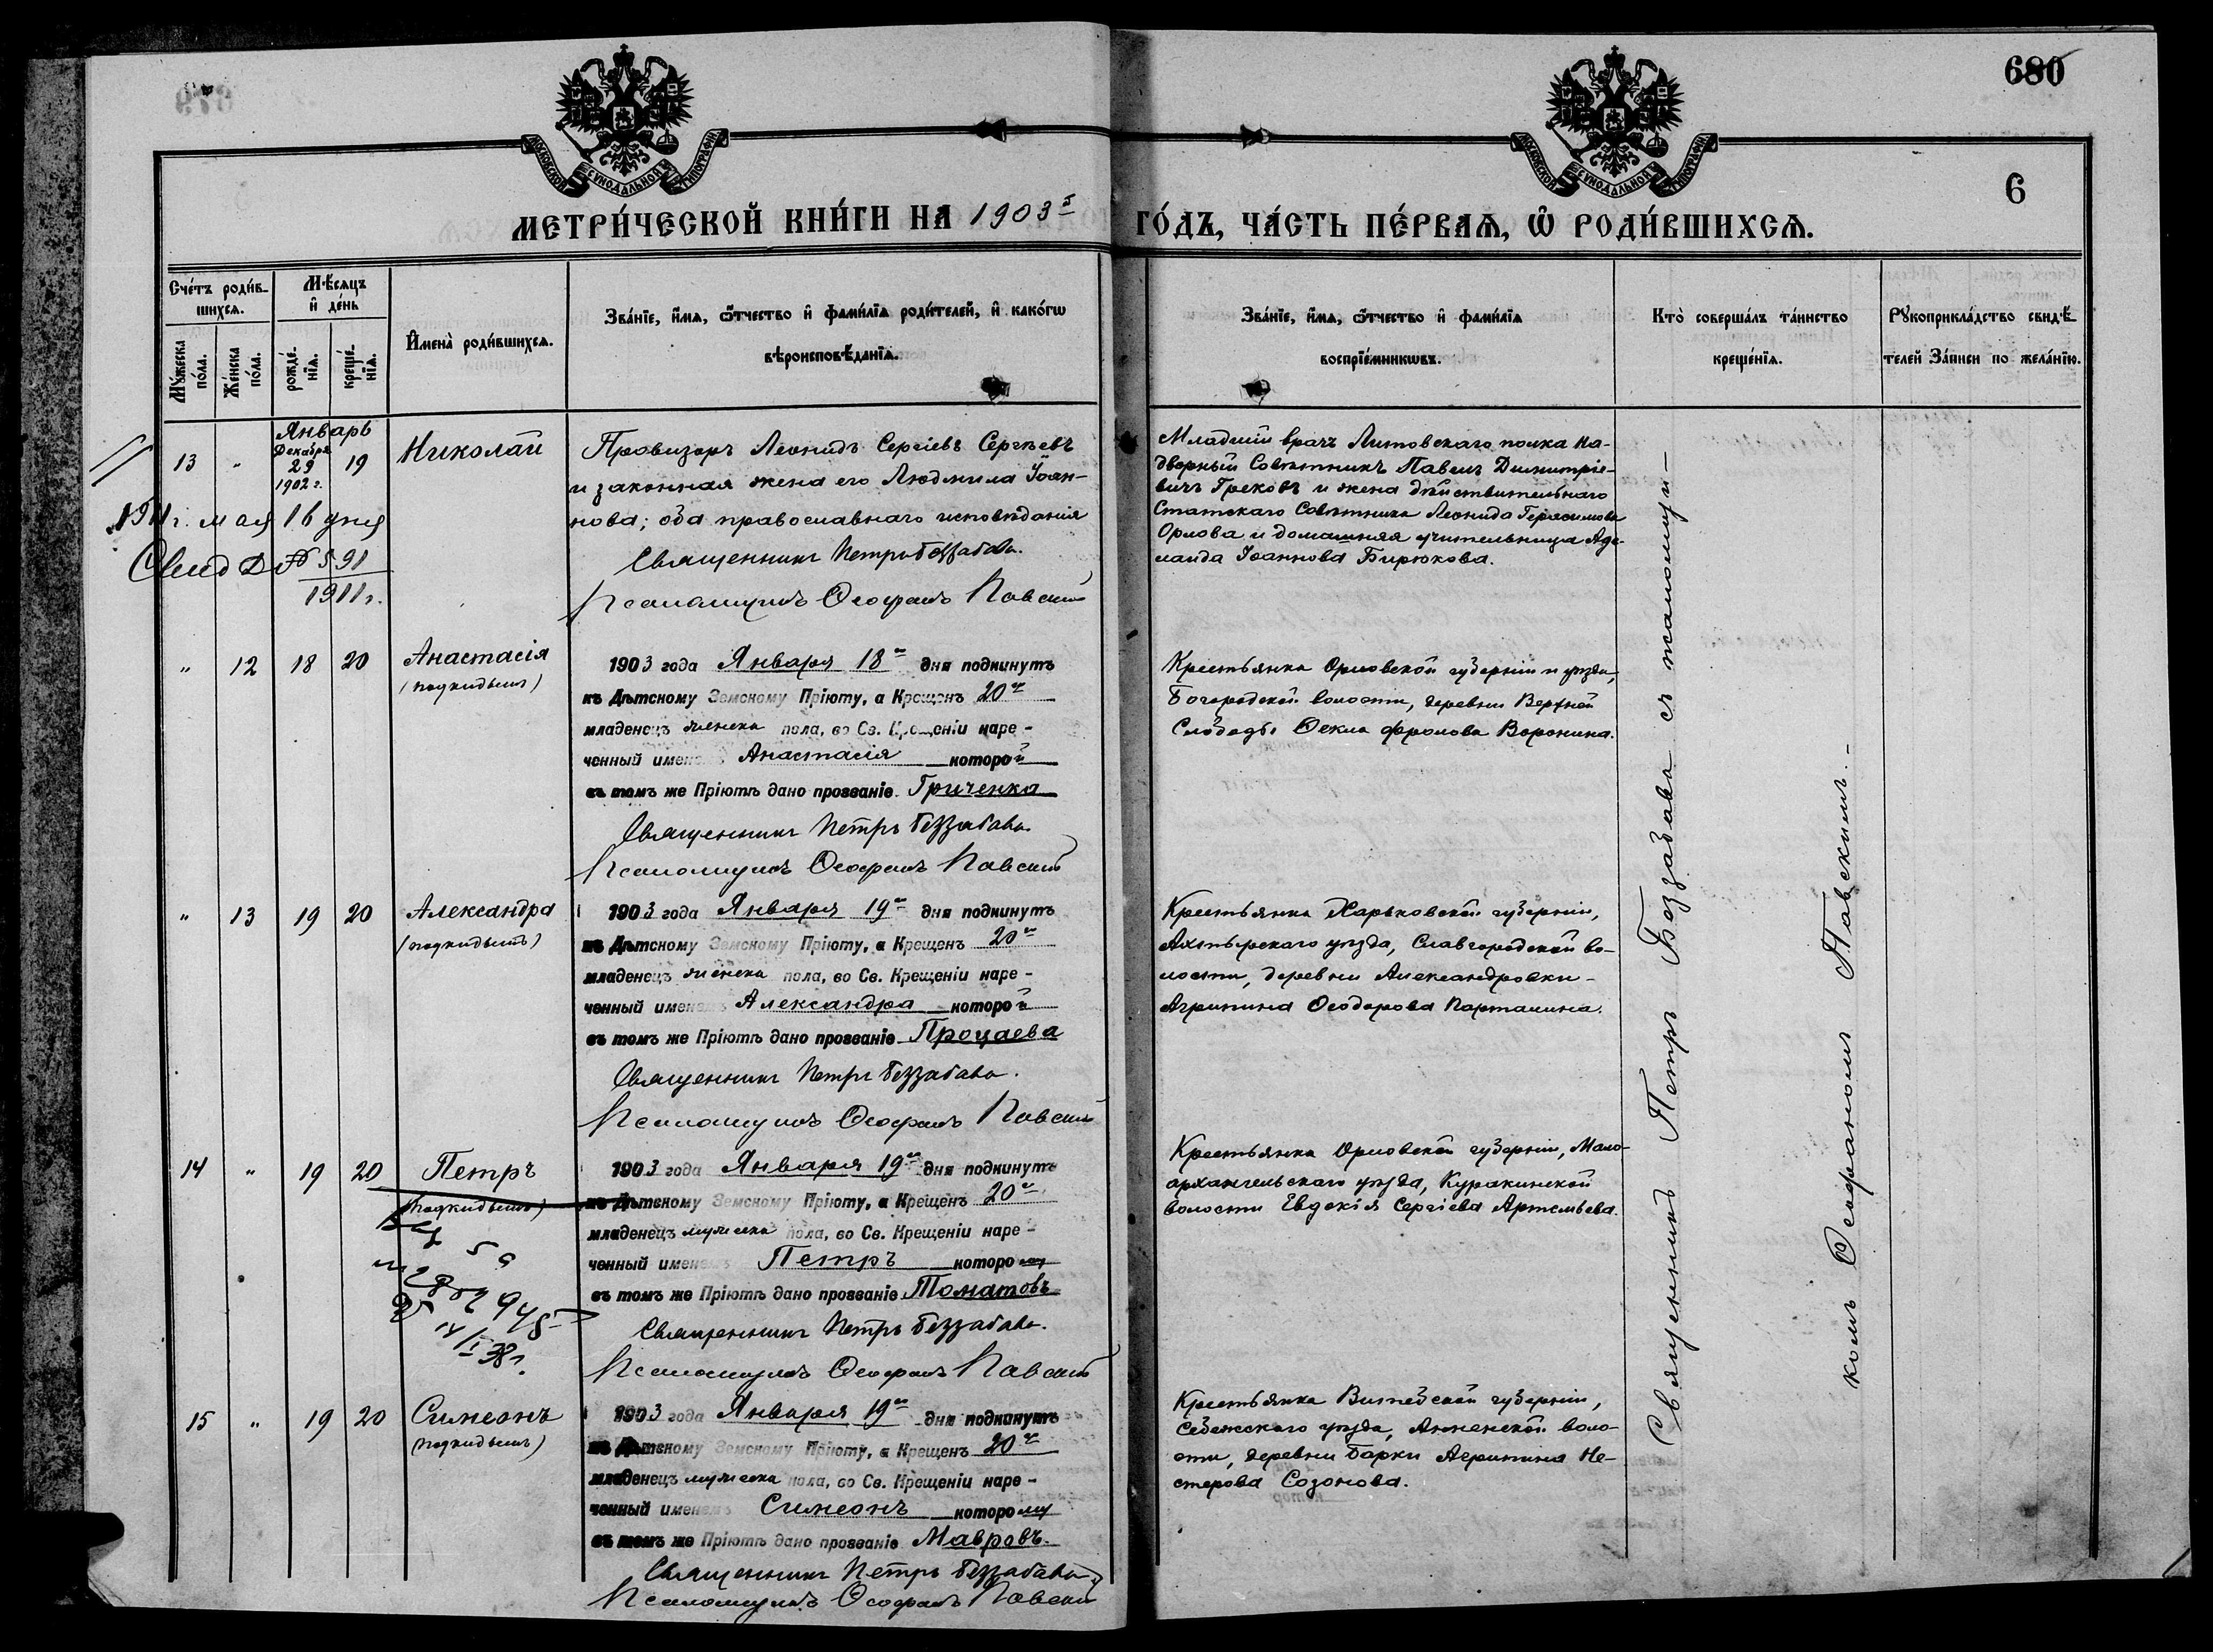 680
МОСКОВСКОЙ СѴНОДАЛЬНОЙ ТИПОГРАФІИ
МОСКОВСКОЙ СѴНОДАЛЬНОЙ ТИПОГРАФІИ
6
МЕТРИ́ЧЕСКОЙ КНИ́ГИ НА 1903й ГО́ДЪ, ЧА́СТЬ ПЕ́РВАѦ, Ѽ РОДИ́ВШИХСѦ.
Сче́тъ роди́в-
шихсѧ.
Мꙋ́жеска по́ла.
Же́нска по́ла.
Мѣ́сѧцъ
и҆ де́нь
рожде́-
нїѧ.
креще́-
нїѧ.
И҆мена̀ роди́вшихсѧ.
Зва́нїе, и҆́мѧ, ѻ҆́тчество и҆ фами́лїѧ роди́телей, и҆ како́гѡ
вѣроисповѣ́данїѧ.
Зва́нїе, и҆́мѧ, ѻ҆́тчество и҆ фами́лїѧ
воспрїе́мникѡвъ.
Кто̀ соверша́лъ та́инство
креще́нїѧ.
Рꙋкоприкла́дство свидѣ́-
телей за́писи по жела́нїю.
Январь
13 " Декабря 29 1902 г. 19 Николай
Провизоръ Леонидъ Сергіевъ Сергѣевъ
и законная жена его Людмила Іоан-
нова; оба православнаго исповѣданія
Священникъ Петръ Беззабава.
Псаломщикъ Ѳеофанъ Павскій
1911 г. мая 16 дня
Свид № 591
1911 г.
Младшій врачъ Литовскаго полка На-
дворный Совѣтникъ Павелъ Димитріе-
вичъ Грековъ и жена дѣйствительнаго
Статскаго Совѣтника Леонида Герасимова
Орлова и домашняя учительница Аде-
лаида Іоаннова Бирюкова.
" 12 18 20 Анастасія
(подкидышъ)
1903 года Января 18го дня подкинутъ
къ Дѣтскому Земскому Пріюту, а Крещенъ 20го
младенецъ женска пола, во Св. Крещеніи наре-
ченный именемъ Анастасія которой
въ томъ же Пріютѣ дано прозваніе Гриченка
Священникъ Петръ Беззабава.
Псаломщикъ Ѳеофанъ Павскій
Крестьянка Орловской губерніи и уѣзда,
Богородской волости, деревни Верхней
Слободы Ѳекла Фролова Воронина.
" 13 19 20 Александра
(подкидышъ)
1903 года Января 19го дня подкинутъ
къ Дѣтскому Земскому Пріюту, а Крещенъ 20го
младенецъ женска пола, во Св. Крещеніи наре-
ченный именемъ Александра которой
въ томъ же Пріютѣ дано прозваніе Процаева
Священникъ Петръ Беззабава.
Псаломщикъ Ѳеофанъ Павскій
Крестьянка Харьковской губерніи,
Ахтырскаго уѣзда, Славгородской во-
лости, деревни Александровки -
Агрипина Ѳеодорова Парталина.
14 " 19 20 Петръ
(подкидышъ)
14/I 38 г.
1903 года Января 19го дня подкинутъ
къ Дѣтскому Земскому Пріюту, а Крещенъ 20го
младенецъ мужеска пола, во Св. Крещеніи наре-
ченный именемъ Петръ которому
въ томъ же Пріютѣ дано прозваніе Томатовъ
Священникъ Петръ Беззабава.
Псаломщикъ Ѳеофанъ Павскій
Крестьянка Орловской губерніи, Мало-
архангельскаго уѣзда, Куракинской
волости Евдокія Сергіева Артемьева.
15 " 19 20 Симеонъ
(подкидышъ)
1903 года Января 19го дня подкинутъ
къ Дѣтскому Земскому Пріюту, а Крещенъ 20го
младенецъ мужеска пола, во Св. Крещеніи наре-
ченный именемъ Симеонъ которому
въ томъ же Пріютѣ дано прозваніе Мавровъ.
Священникъ Петръ Беззабава
Псаломщикъ Ѳеофанъ Павскій
Крестьянка Витебской губерніи,
Себежскаго уѣзда, Анненской воло-
сти, деревни Барки Агрипина Не-
стерова Созонова.
Священникъ Петръ Беззабава съ псаломщи-
комъ Ѳеофаномъ Павскимъ.-